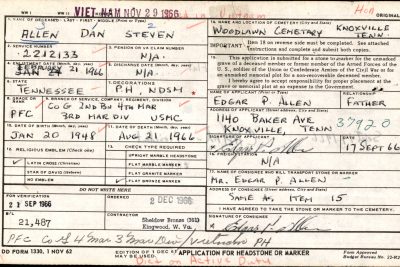 WW I
WW II
VIET-NAM NOV 29 1966
1. NAME OF DECEASED - LAST - FIRST - MIDDLE (Print or Type)
ALLEN DAN STEVEN
2. SERVICE NUMBER
2212133
3. PENSION OR VA CLAIM NUMBER
N/A.
4. ENLISTMENT DATE
1966
N/A.
TENNESSEE
P.H., NDSM
BRANCH OF SERVICE, COMPANY, REGIMENT, DIVISION
PFC
CO G 2ND BN 4TH MAR
3RD MAR DIV USMC
10. DATE OF BIRTH (Month, Day, Year)
JAN 20 1948
11. DATE OF DEATH (Month, Day, Year)
AUG 21, 1966
12. RELIGIOUS EMBLEM (Check one)
LATIN CROSS (Christian)
STAR OF DAVID (Hebrew)
NO EMBLEM
13. CHECK TYPE REQUIRED
UPRIGHT MARBLE HEADSTONE
FLAT MARBLE MARKER
FLAT GRANITE MARKER
FLAT BRONZE MARKER
DO NOT WRITE HERE
FOR VERIFICATION
23 SEP 1966
2 DEC 1966
B/L
21,487
CONTRACTOR
Sheidow Bronze (361)
Kingwood, W. Va.
PFC Co G 4 Mar 3 Mar Div Vietnam PH
14. NAME AND LOCATION OF CEMETERY (City and State)
WOODLAWN CEMETERY
KNOXVILLE TENN
IMPORTANT
Item 18 on reverse side must be completed. See attached instructions and complete and submit both copies.
This application is submitted for a stone or marker for the unmarked grave of a deceased member or former member of the Armed Forces of the U. S., soldier of the Union or Confederate Armies of the Civil War or for an unmarked memorial plot for a non-recoverable deceased veteran.
I hereby agree to accept responsibility for proper placement at the grave or memorial plot at no expense to the Government.
EDGAR P. ALLEN
RELATIONSHIP
FATHER
1140 BAKER AVE
KNOXVILLE, TENN
37920
SIGNATURE OF APPLICANT
DATE
17 SEPT 66
N/A
16. NAME OF CONSIGNEE WHO WILL TRANSPORT STONE OR MARKER
MR. EDGAR P. ALLEN
ADDRESS OF CONSIGNEE
SAME AS ITEM 15
I HAVE AGREED TO TRANSPORT THE STONE OR MARKER TO THE CEMETERY.
SIGNATURE OF CONSIGNEE
DD FORM 1330, 1 NOV 62
APPLICATION FOR HEADSTONE OR MARKER
Form Approved
Died on Active Duty